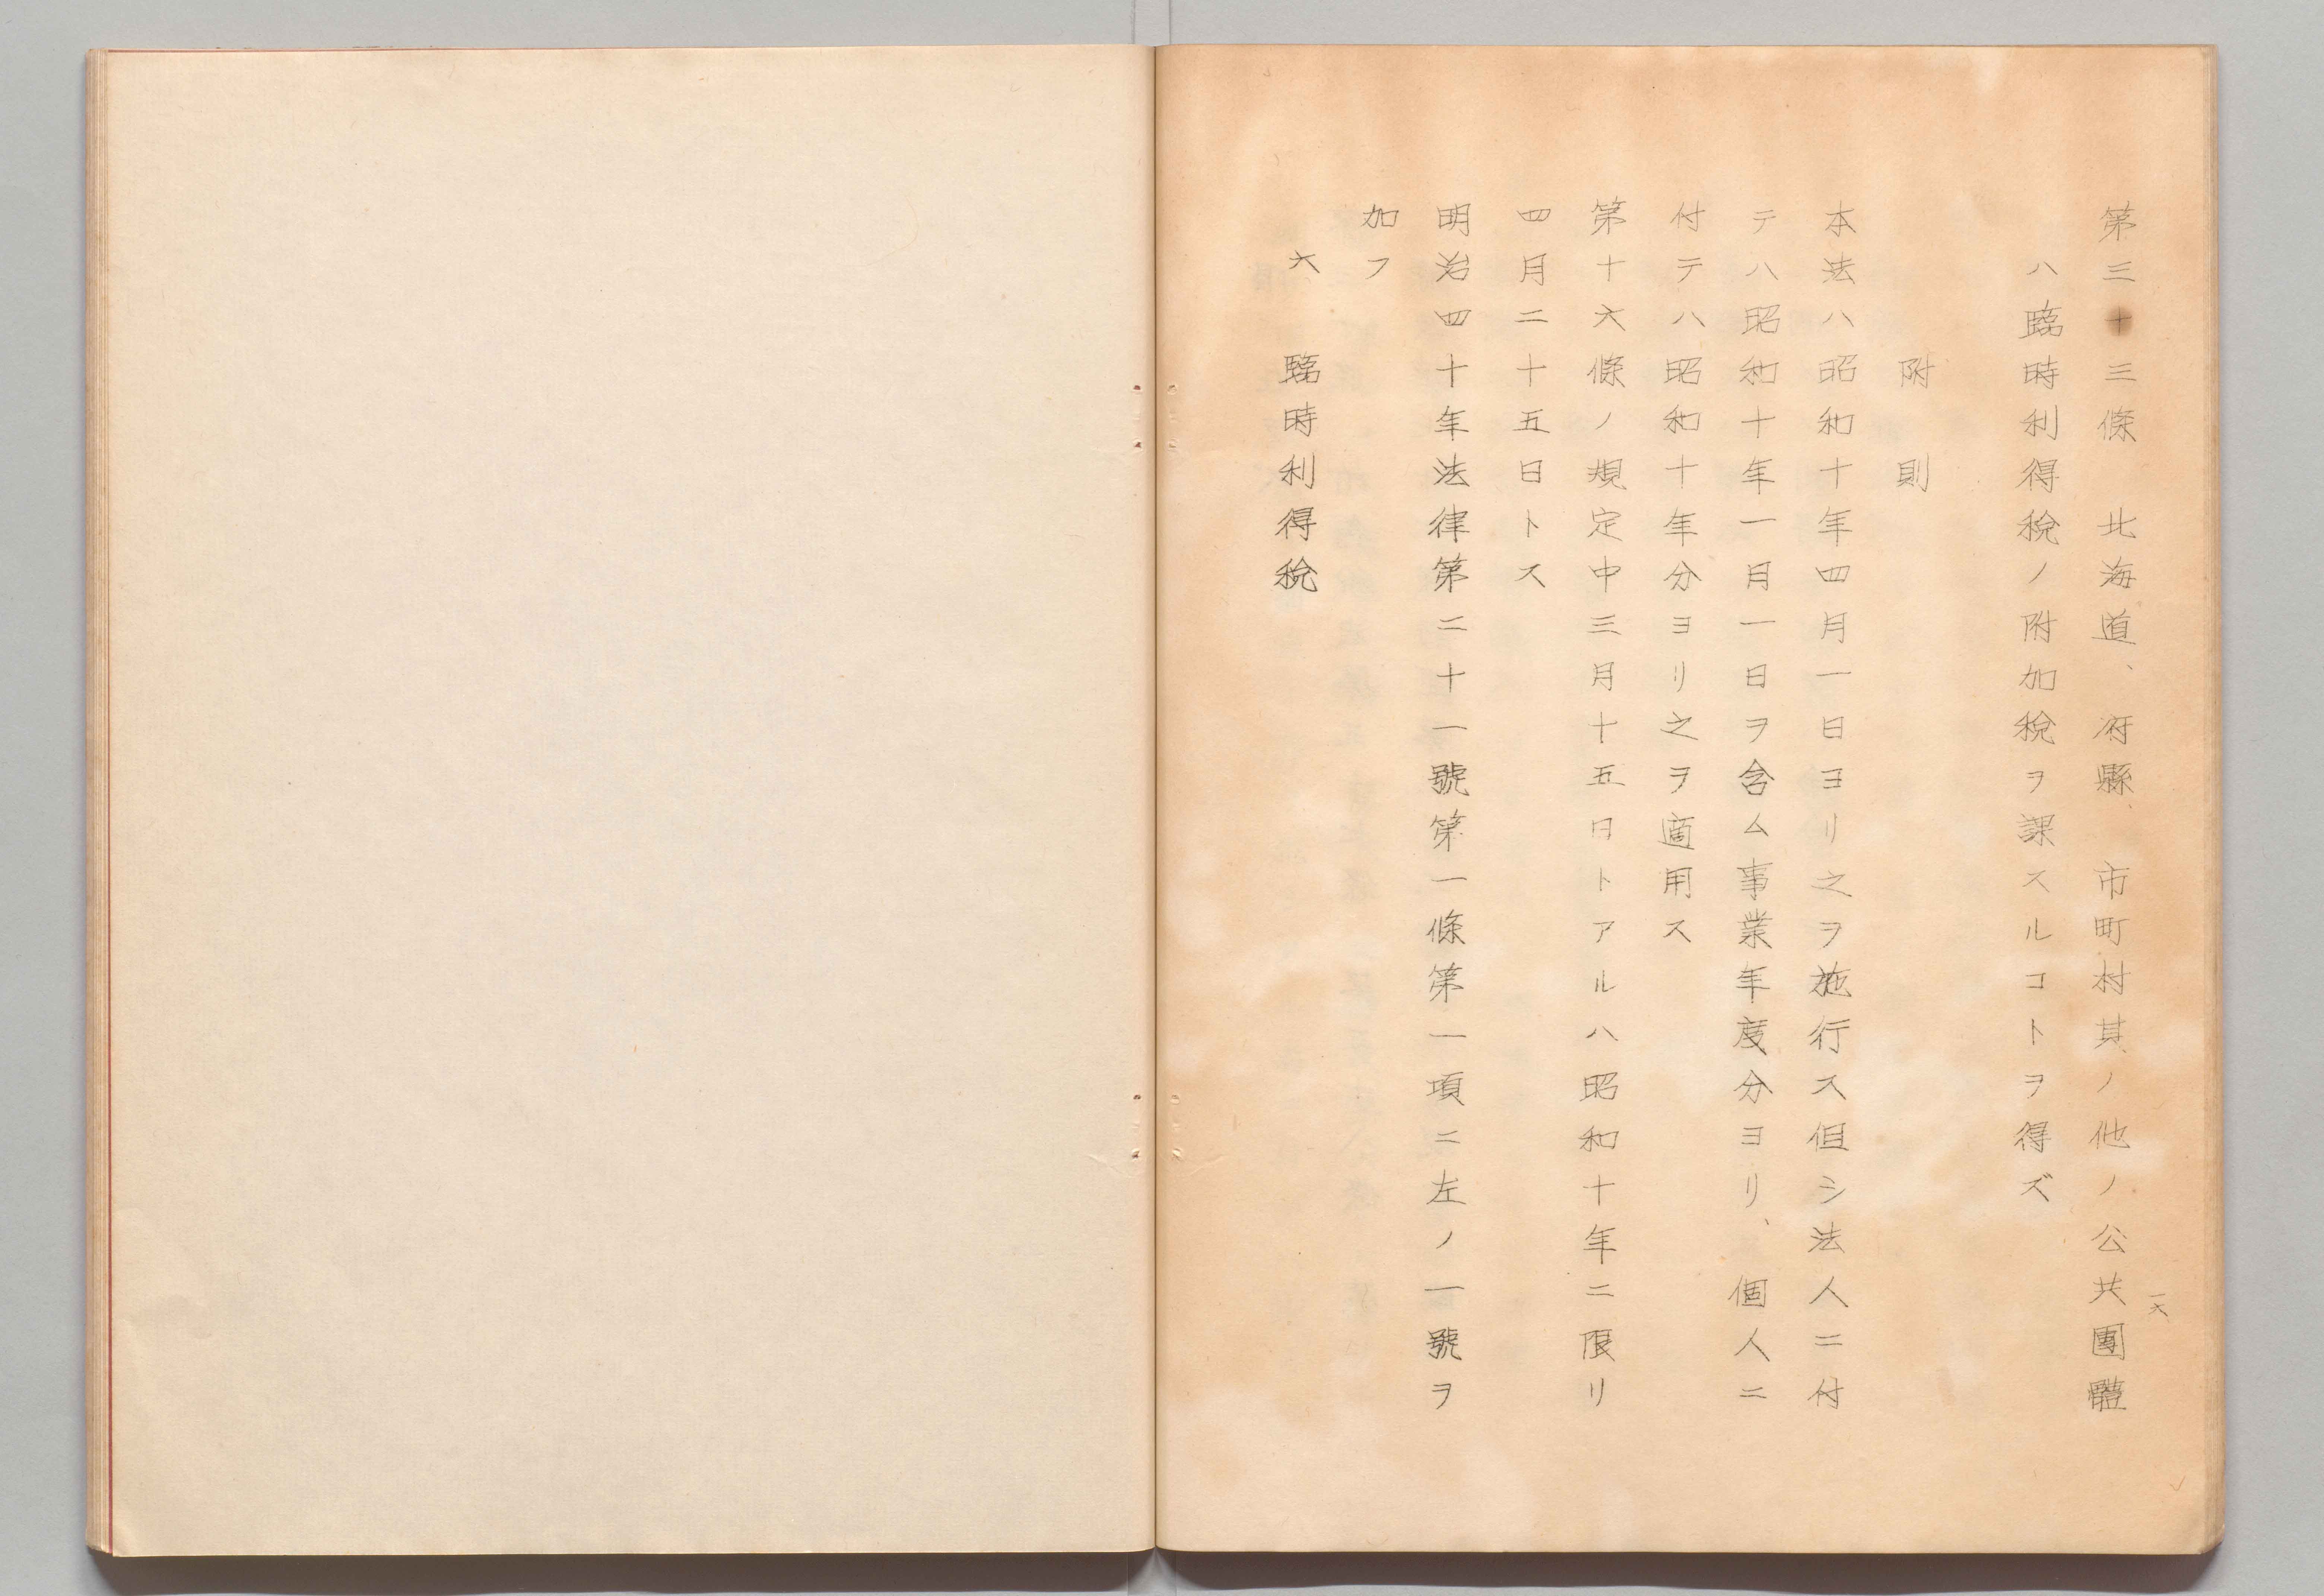 第三十三條　北海道、府縣、市町村其ノ他ノ公共團體
ハ臨時利得稅ノ附加稅ヲ課スルコトヲ得ズ
附則
本法ハ昭和十年四月一日ヨリ之ヲ施行ス但シ法人ニ付
テハ昭和十年一月一日ヲ含ム事業年度分ヨリ、個人ニ
付テハ昭和十年分ヨリ之ヲ適用ス
第十六條ノ規定中三月十五日トアルハ昭和十年ニ限リ
四月二十五日トス
明治四十年法律第二十一號第一條第一項ニ左ノ一號ヲ
加フ
六　臨時利得稅
一六